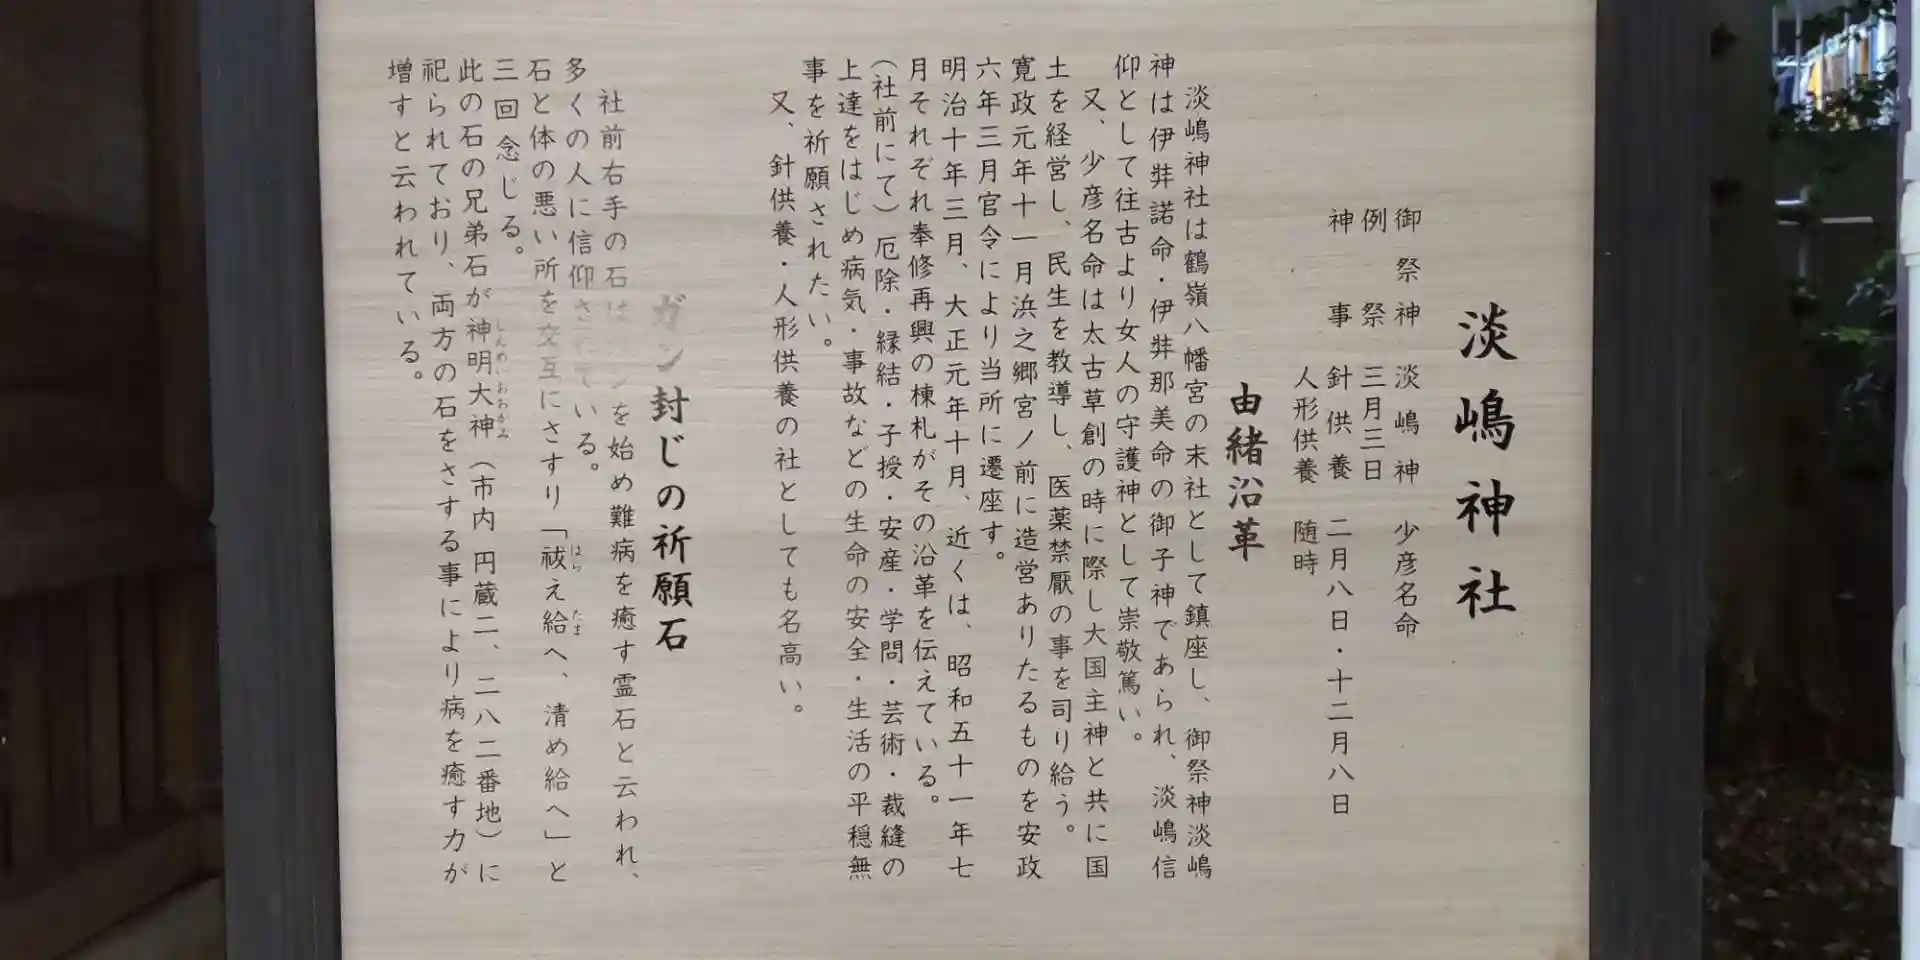 淡嶋神社
御祭神 淡嶋神 少彦名命
例祭 三月三日
神事 針供養 二月八日・十二月八日
人形供養 随時
由緒沿革
淡嶋神社は鶴嶺八幡宮の末社として鎮座し、御祭神淡嶋
神は伊弉諾命・伊弉那美命の御子神であられ、淡嶋信
仰として往古より女人の守護神として崇敬篤い。
又、少彦名命は太古草創の時に際し大国主神と共に国
土を経営し、民生を教導し、医薬禁厭の事を司り給う。
寛政元年十一月浜之郷宮ノ前に造営ありたるものを安政
六年三月官令により当所に遷座す。
明治十年三月、大正元年十月、近くは、昭和五十一年七
月それぞれ奉修再興の棟札がその沿革を伝えている。
(社前にて)厄除・縁結・子授・安産・学問・芸術・裁縫の
上達をはじめ病気・事故などの生命の安全・生活の平穏無
事を祈願されたい。
又、針供養・人形供養の社としても名高い。
ガン封じの祈願石
社前右手の石はガンを始め難病を癒す霊石と云われ、
多くの人に信仰されている。
石と体の悪い所を交互にさすり「祓え給へ、清め給へ」と
三回念じる。
此の石の兄弟石が神明大神(市内 円蔵二、二八二番地)に
祀られており、両方の石をさする事により病を癒す力が
増すと云われている。